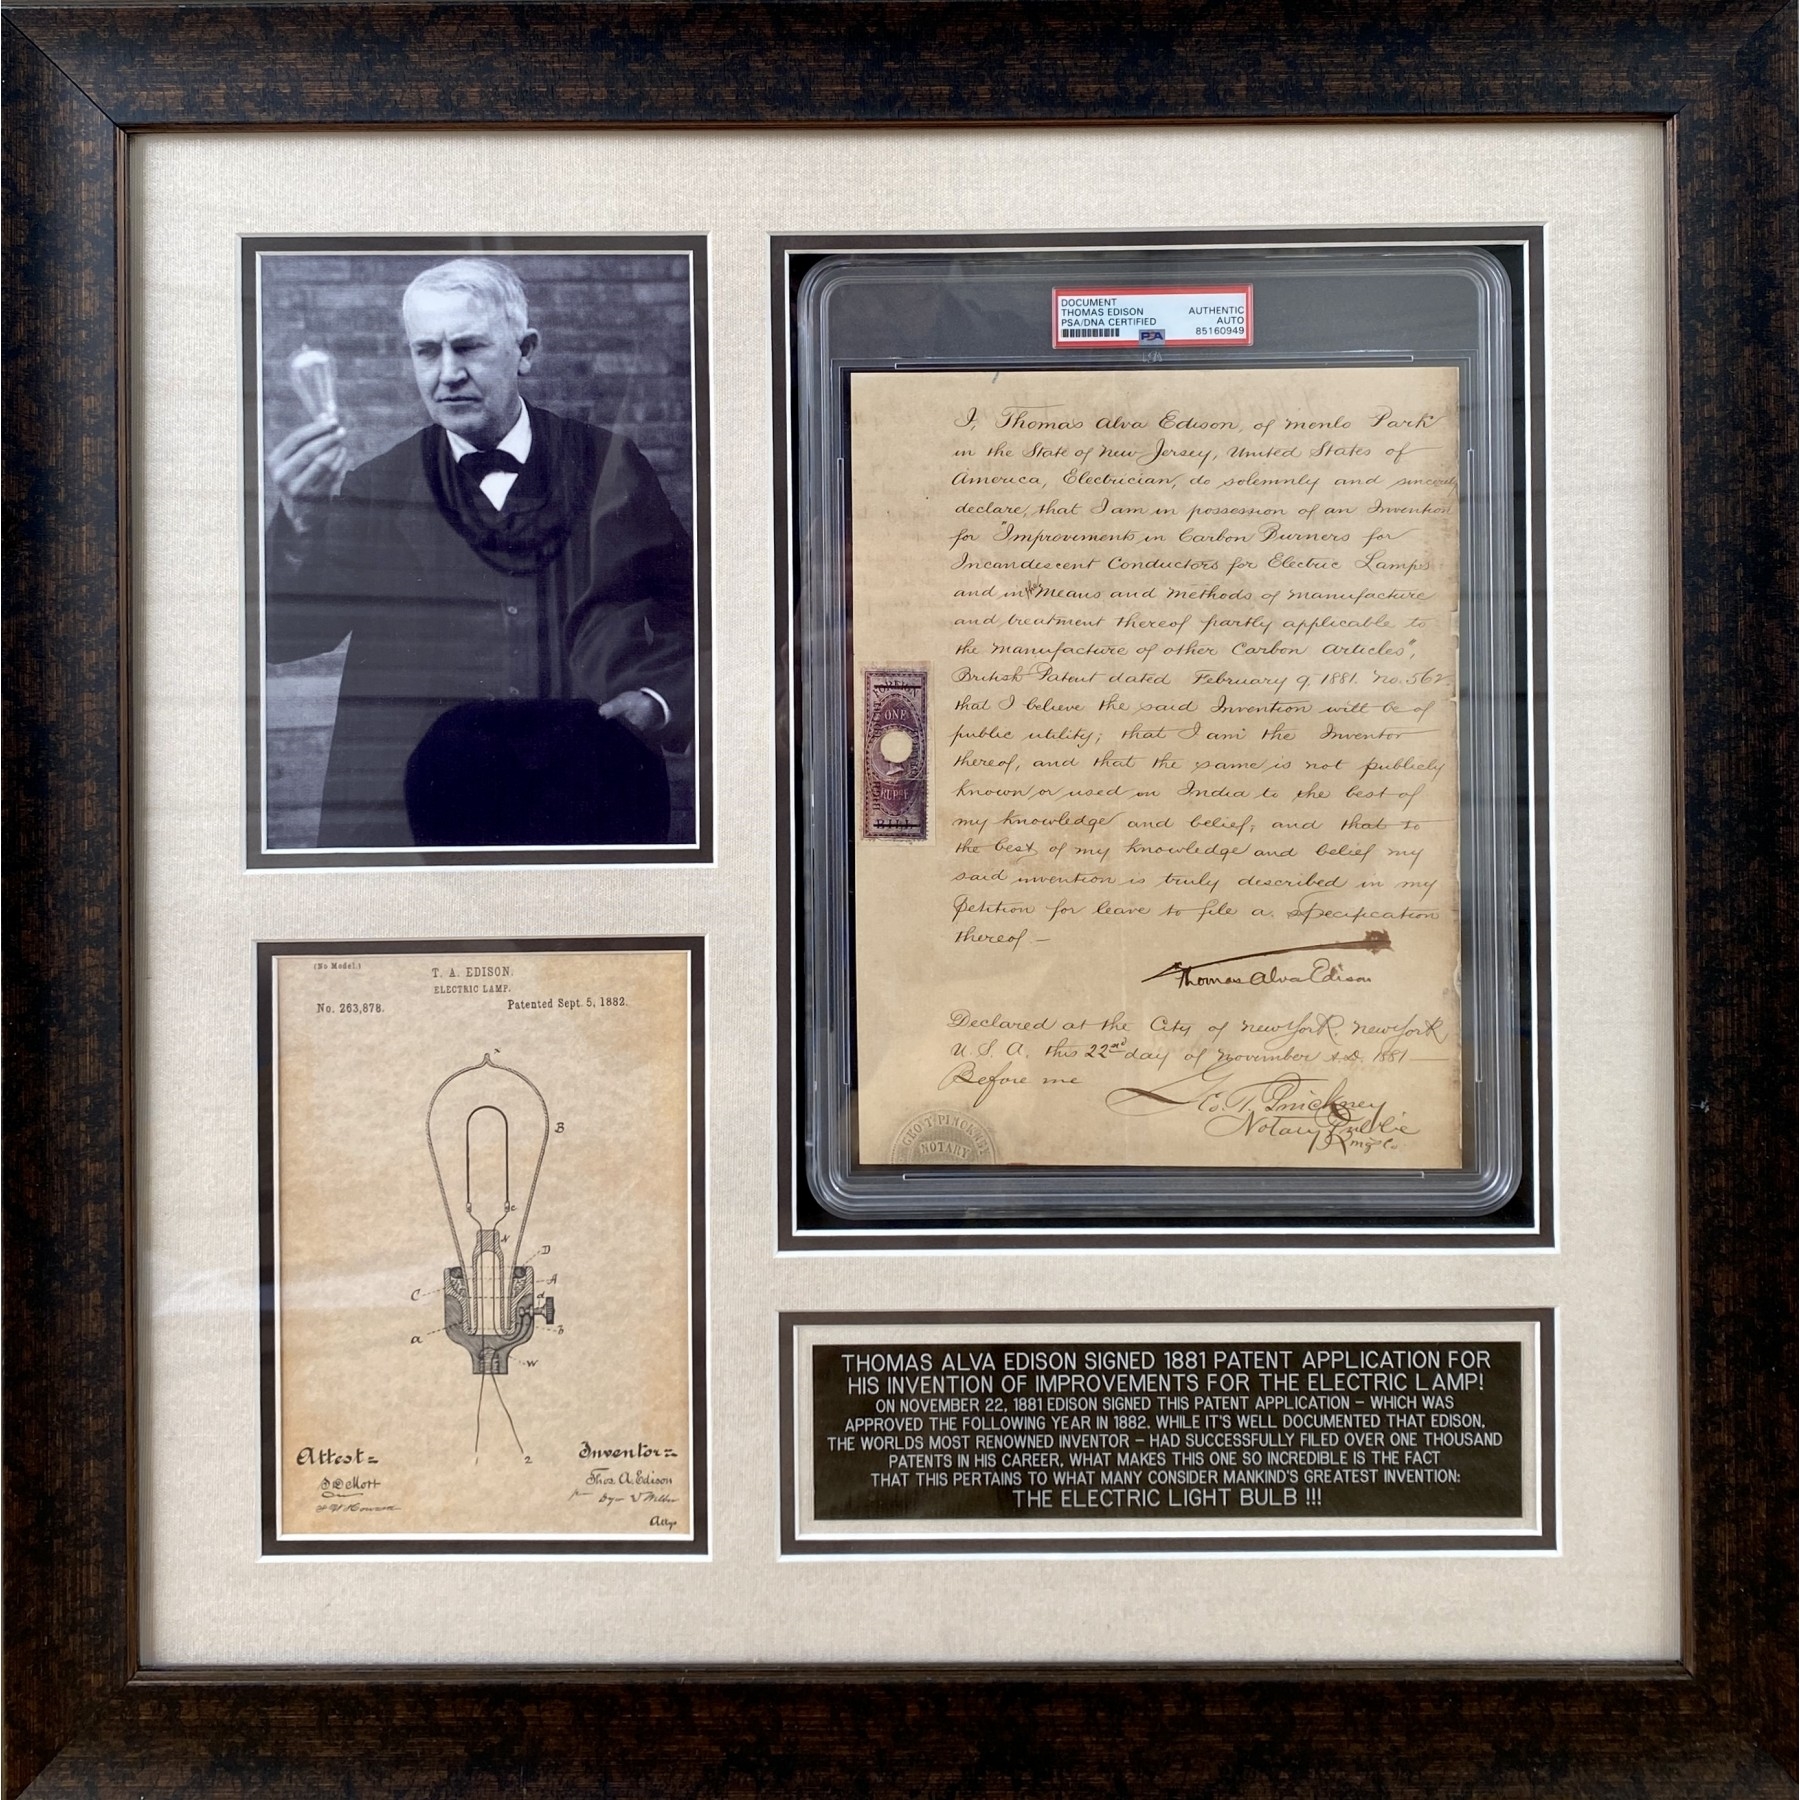 DOCUMENT
THOMAS EDISON
PSA/DNA CERTIFIED
AUTHENTIC
AUTO
85160949
PSA
I, Thomas Alva Edison, of Menlo Park
in the State of New Jersey, United States of
America, Electrician, do solemnly and sincerely
declare, that I am in possession of an Invention
for "Improvements in Carbon Burners for
Incandescent Conductors for Electric Lamps
and in the Means and Methods of Manufacture
and treatment thereof partly applicable to
the manufacture of other Carbon Articles",
British Patent dated February 9, 1881. No. 562.
that I believe the said Invention will be of
public utility; that I am the Inventor
thereof, and that the same is not publicly
known or used in India to the best of
my knowledge and belief; and that to
the best of my knowledge and belief my
said invention is truly described in my
Petition for leave to file a specification
thereof —
Thomas Alva Edison
Declared at the City of New York, New York
U. S. A. this 22nd day of November A.D. 1881 —
Before me
Geo. T. Pinckney
Notary Public
GEO T PINCKNEY
NOTARY
FOREIGN
ONE
RUPEE
BILL
(No Model.)
T. A. EDISON.
ELECTRIC LAMP.
No. 263,878.
Patented Sept. 5, 1882.
B
c
N
D
C
A
d
a
b
W
1
2
Attest=
Inventor=
Thos. A. Edison
Attys
THOMAS ALVA EDISON SIGNED 1881 PATENT APPLICATION FOR
HIS INVENTION OF IMPROVEMENTS FOR THE ELECTRIC LAMP!
ON NOVEMBER 22, 1881 EDISON SIGNED THIS PATENT APPLICATION – WHICH WAS
APPROVED THE FOLLOWING YEAR IN 1882. WHILE IT'S WELL DOCUMENTED THAT EDISON,
THE WORLDS MOST RENOWNED INVENTOR – HAD SUCCESSFULLY FILED OVER ONE THOUSAND
PATENTS IN HIS CAREER, WHAT MAKES THIS ONE SO INCREDIBLE IS THE FACT
THAT THIS PERTAINS TO WHAT MANY CONSIDER MANKIND'S GREATEST INVENTION:
THE ELECTRIC LIGHT BULB !!!